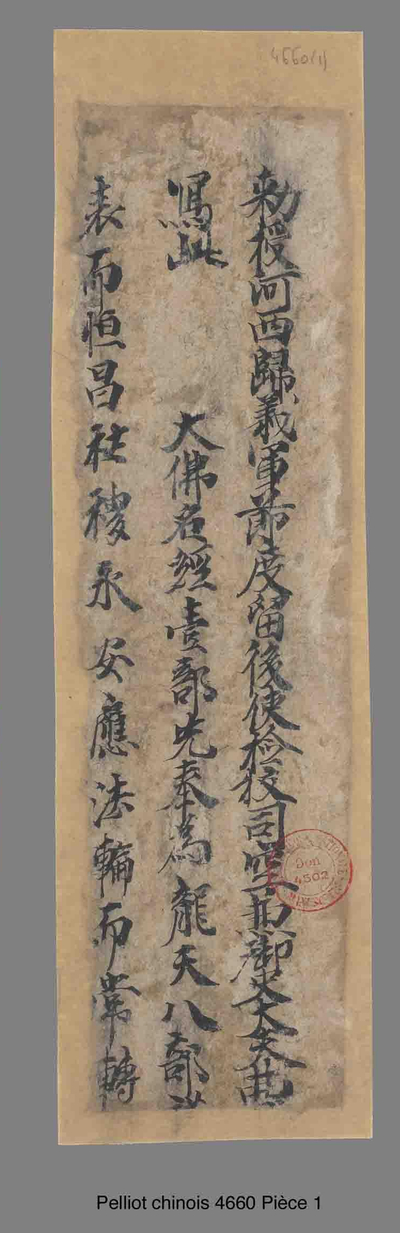 4660(1)
勑授河西歸義軍節度留後使檢校司空兼御史大夫曹
寫此　　大佛名經壹部先奉為龍天八部
表而恒昌社稷永安應法輪而常轉
Don 4502
Pelliot chinois 4660 Pièce 1